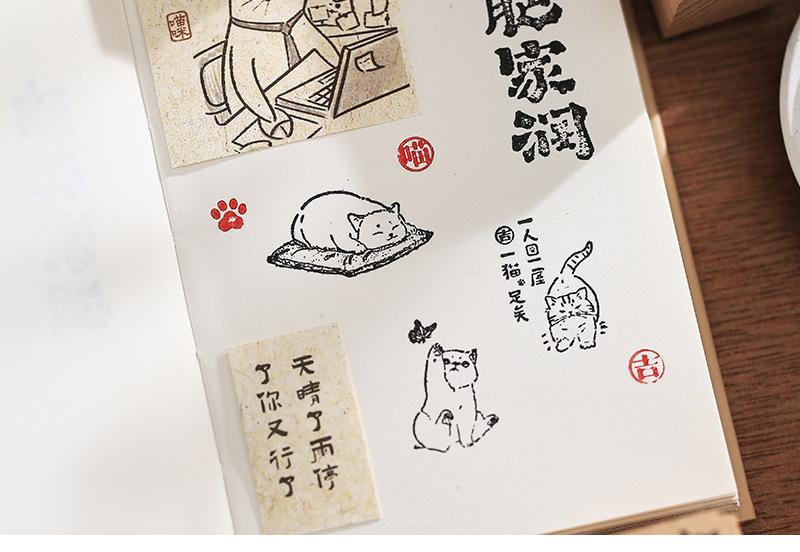 喵咪
肥家润
喵
一人一屋
一猫足矣
吉
吉
天晴了雨停
了你又行了